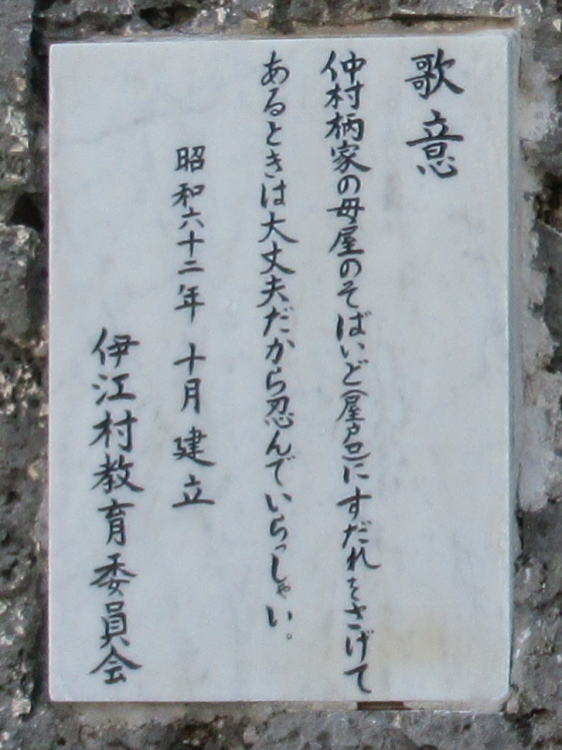 歌意
仲村柄家の母屋のそばいど(屋戸口)にすだれをさげて
あるときは大丈夫だから忍んでいらっしゃい。
昭和六十二年 十月 建立
伊江村教育委員会